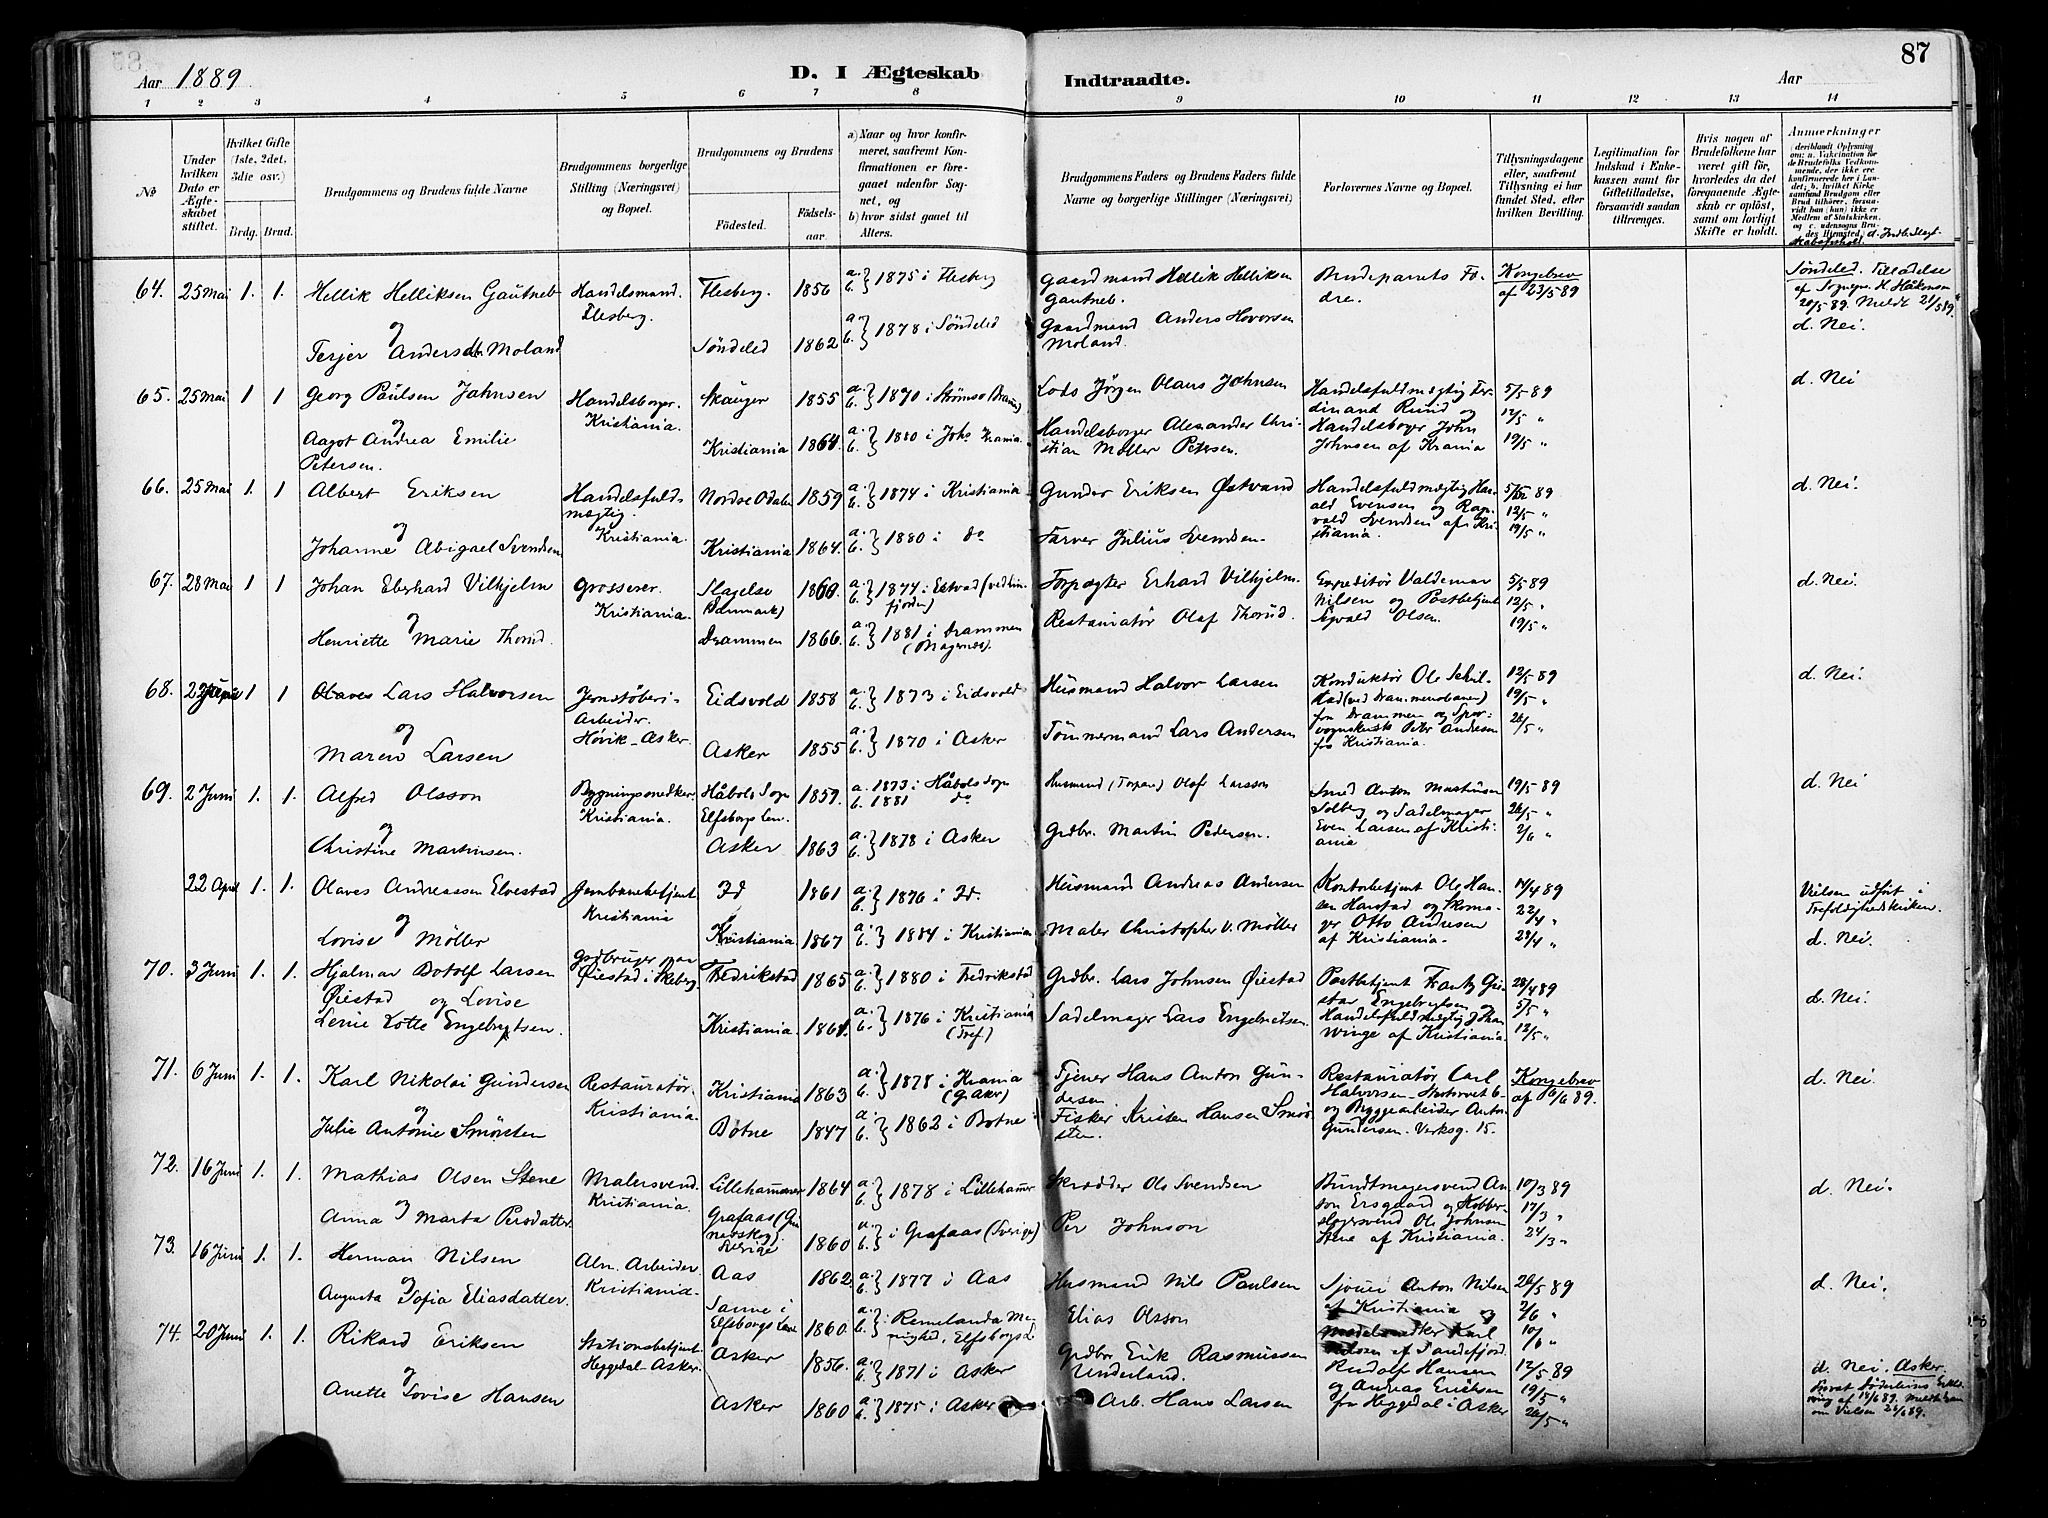 Aar 1889
D. I Ægteskab
Indtraadte.
Aar
87
1 2 3 4 5 6 7 8 9 10 11 12 13 14
No
Under hvilken Dato er Ægteskabet stiftet.
Hvilket Gifte (1ste, 2det, 3die osv.)
Brdg. Brud.
Brudgommens og Brudens fulde Navne
Brudgommens borgerlige Stilling (Næringsvei) og Bopæl.
Brudgommens og Brudens
Fødested.
Fødselsaar.
a) Naar og hvor konfirmeret, saafremt Konfirmationen er foregaaet udenfor Sognet, og
b) hvor sidst gaaet til Alters.
Brudgommens Faders og Brudens Faders fulde Navne og borgerlige Stillinger (Næringsvei)
Forlovernes Navne og Bopæl.
Tillysningsdagene eller, saafremt Tillysning ei har fundet Sted, efter hvilken Bevilling.
Legitimation for Indskud i Enkekassen samt for Giftetilladelse, forsaavidt saadan tiltrenges.
Hvis nogen af Brudefolkene har været gift før, hvorledes da det foregaaende Ægteskab er opløst, samt om lovligt Skifte er holdt.
Anmerkninger
64. 25 Mai 1. 1. Hellik Helliksen Gautneb Handelsmand. Flesberg. Flesberg. 1856 a. b. } 1875 i Flesberg Gaardmand Hellik Helliksen Gautneb. Brudeparrets Fædre. Kongebrev af 23/5 89 Søndeled. Tilladelse af Sognepr. H. Håkonsen 20/5 89. Meldt 21/5 89.
og
Terjer Andersdtr Moland Søndeled 1862 a. b. } 1878 i Søndeled Gaardmand Anders Hovorsen Moland. d. Nei.
65. 25 Mai 1 1 Georg Paulsen Jahnsen Handelsborger. Kristiania. Skauger 1855 a. b. } 1870 i Strømsø Lods Jørgen Olaus Jahnsen Handelsfuldmægtig Ferdinand Rund og Handelsborger John Johnsen af Krania 5/5 89 12/5 " 19/5 " d. Nei
og
Aagot Andrea Emilie Petersen. Kristiania 1861. a. b. } 1880 i Joh. Krania. Handelsborger Alexander Christian Møller Petersen.
66. 25 Mai 1. 1 Albert Eriksen Handelsfuldmægtig. Kristiania. Nordre Odalen 1859 a. b. } 1874 i Kristiania Gunder Eriksen Østvand Handelsfuldmægtig Harald Evensen og Ragnvald Svendsen af Kristiania. 5/5 89 12/5 " 19/5 " d. Nei.
og
Johanne Abigael Svendsen Kristiania 1864. a. b. } 1880 i do Farver Julius Svendsen.
67. 28 Mai 1 1 Johan Eberhard Vilhjelm Grosserer. Kristiania. Slagelse (Danmark) 1860. a. b. } 1874 i Estvad (ved Limfjorden) Forpagter Erhard Vilhjelm. Expeditør Valdemar Nilsen og Postbetjent Sigvald Olsen. 5/5 89 12/5 " 19/5 " d. Nei.
og
Henriette Marie Thorud. Drammen 1866. a. b. } 1881 i Drammen (Bragernes). Restauratør Olaf Thorud.
68. 1 1 Olaves Lars Halvorsen Jernstøberi-Arbeider. Høvik - Asker. Eidsvold 1858 a. b. } 1873 i Eidsvold Husmand Halvor Larsen Konduktør Ole (ved Drammensbanen) fra Drammen og Sporvognskusk Peter Andresen fra Kristiania. 12/5 89 19/5 " 26/5 " d. Nei.
og
Maren Larsen Asker 1855 a. b. } 1870 i Asker Tømmermand Lars Andersen
69. 2 Juni 1. 1. Alfred Olsson Bygningssnedker Kristiania. Håbols Sogn Elfsborgs Len. 1859. a. 1873 i Håbols Sogn b. 1881 do Husmand (Torpare) Olaf Larsson Smed Anton Martinsen Solberg og Sadelmager Even Larsen af Kristiania 19/5 89 26/5 " 2/6 " d. Nei
og
Christine Martinsen. Asker 1863 a. b. } 1878 i Asker Grdbr. Martin Pedersen.
22 April 1. 1. Olaves Andreassen Elvestad Jernbanebetjent Kristiania Id 1861 a. b. } 1876 i Id. Husmand Andreas Andersen Kontorbetjent Ole Hansen Harstad og Skomager Otto Andresen af Kristiania. 14/4 89 22/4 " 29/4 " Vielsen udført i Trefoldighedskirken.
og
Lovise Møller Kristiania 1867 a. b. } 1884 i Kristiania Maler Christopher v. Møller d. Nei.
70. 3 Juni 1. 1. Hjalmar Botolf Larsen Øiestad og Lovise Lenie Lotte Engebrytsen. Gaardbruger paa Øiestad i Skeberg Fredrikstad 1865 a. b. } 1880 i Fredrikstad Grdbr. Lars Johnsen Øiestad Postbetjent Frantz Gustav Engebrytsen og Handelsfuldmægtig Johan Winge af Kristiania. 28/4 89 5/5 " 12/5 " d. Nei.
Kristiania. 1861. a. b. } 1876 i Kristiania (Tref) Sadelmager Lars Engebretsen.
71. 6 Juni 1. 1. Karl Nikolai Gundersen Restauratør. Kristiania. Kristiania 1863 a. b. } 1878 i Krania (G. Aker) Tjener Hans Anton Gundersen Restauratør Carl Halvorsen - Storvet 6 - og Byggearbeider Anton Gundersen. Verksg. 15. Kongebrev af 6/6 89. d. Nei.
og
Julie Antonie Smørsten Botne 1847 a. b. } 1862 i Botne Fisker Kristen Hansen Smørsten.
72. 16 Juni 1. 1. Mathias Olsen Stene Malersvend. Kristiania. Lillehammer 1864 a. b. } 1878 i Lillehammer Skrædder Ole Svendsen Bundtmagersvend Anton Ersgaard og Kobberslagersvend Ole Johnsen Stene af Kristiania. 10/3 89 17/3 " 24/3 " d. Nei.
og
Anna Marta Persdatter Grafaas (Gunnebskog). Sverige 1860 a. b. } i Grafaas (Sverige) Per Johnson
73. 16 Juni 1. 1. Herman Nilsen Alm. Arbeider. Kristiania. Aas 1862 a. b. } 1877 i Aas Husmand Nils Paulsen Sjouer Anton Nilsen af Kristiania og Karl Nilsen af Sandefjord. 26/5 89 2/6 " 10/6 " d. Nei.
og
Augusta Sofia Eliasdatter. Sanne i Elfsborgs Len 1860. a. b. } i Remelanda Menighed, Elfsborgs L. Elias Olsson
74. 20 Juni 1. 1. Rikard Eriksen Stationsbetjent. Heggedal-Asker. Asker 1856. a. b. } 1871 i Asker Grdbr Erik Rasmussen Underland. Rudolf Hansen og Andreas Eriksen fra Heggedal i Asker 12/5 89 19/5 " 26/5 " d. Nei. Asker.
og
Anette Lovise Hansen Asker 1860 a. b. } 1875 i Asker Arb. Hans Larsen